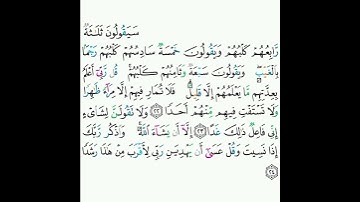 سَيَقُولُونَ ثَلَٰثَةٌ
رَّابِعُهُمْ كَلْبُهُمْ وَيَقُولُونَ خَمْسَةٌ سَادِسُهُمْ كَلْبُهُمْ رَجْمًۢا
بِٱلْغَيْبِ ۖ وَيَقُولُونَ سَبْعَةٌ وَثَامِنُهُمْ كَلْبُهُمْ ۚ قُل رَّبِّىٓ أَعْلَمُ
بِعِدَّتِهِم مَّا يَعْلَمُهُمْ إِلَّا قَلِيلٌ ۗ فَلَا تُمَارِ فِيهِمْ إِلَّا مِرَآءً ظَٰهِرًا
وَلَا تَسْتَفْتِ فِيهِم مِّنْهُمْ أَحَدًا ٢٢ وَلَا تَقُولَنَّ لِشَا۟ىْءٍ
إِنِّى فَاعِلٌ ذَٰلِكَ غَدًا ٢٣ إِلَّآ أَن يَشَآءَ ٱللَّهُ ۚ وَٱذْكُر رَّبَّكَ
إِذَا نَسِيتَ وَقُلْ عَسَىٰٓ أَن يَهْدِيَنِ رَبِّى لِأَقْرَبَ مِنْ هَٰذَا رَشَدًا
٢٤